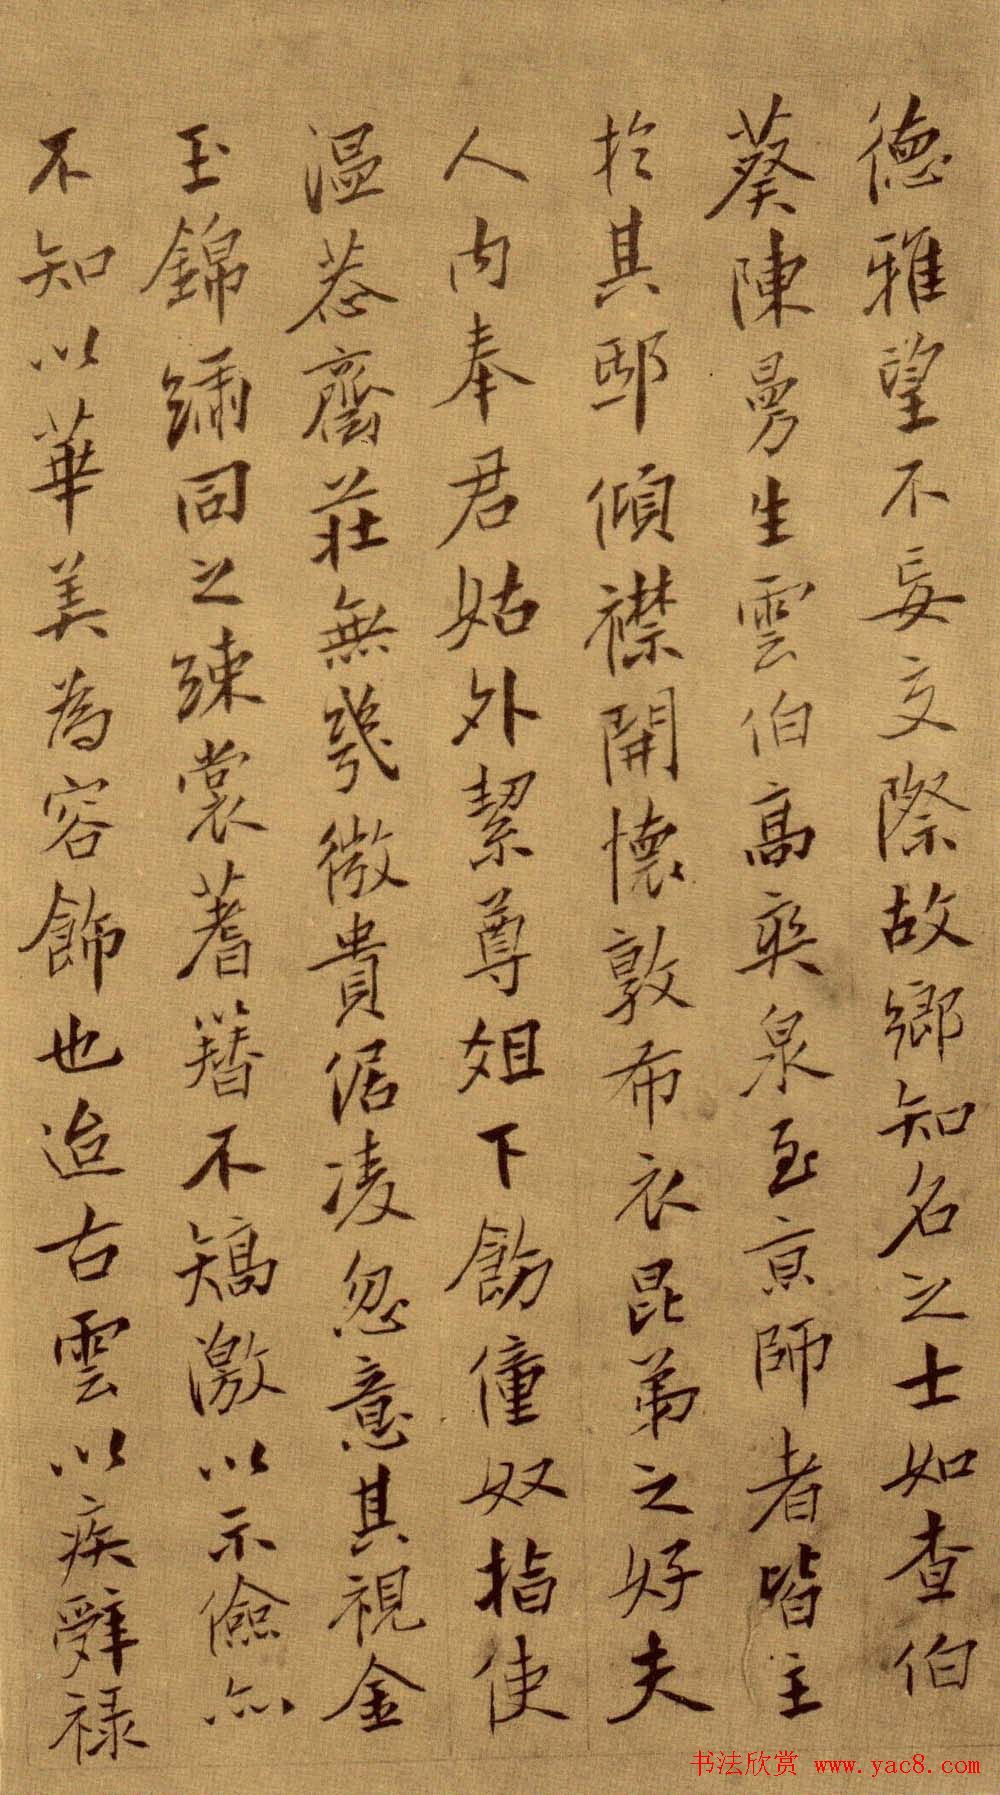 德雅望不妄交際故鄉知名之士如查伯
葵陳曼生雲伯高爽泉至京師者皆主
於其邸傾襟開懷敦布衣昆弟之好夫
人内奉君姑外絜尊姐下飭僮奴指使
温恭齋莊無幾微貴倨凌忽意其視金
玉錦繡同之練裳蓍簪不矯激以示儉亦
不知以華美為容飾也迨古雲以疾辭禄
书法欣赏 www.yac8.com